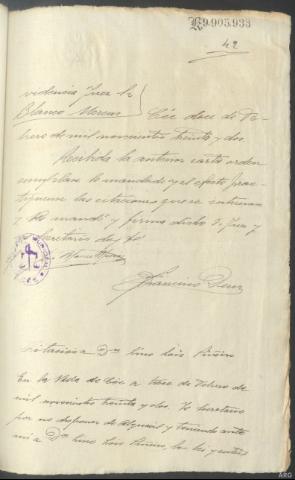 R 9.905.933
42
videncia Juez
Blanco Moreno Cée doce de Fe-
brero de mil novecientos treinta y dos
Recibida la anterior carta orden
cumplase lo mandado y al efecto prac-
tiquense las citaciones que se interesan
y lo mandó y firma dicho S. Juez y
Secretario doy fé
Francisco
Citacion a Dn Lino Lois
En la Villa de Cée a trece de Febrero de
mil novecientos treinta y dos. Yo Secretario
por no disponer de Alguacil y teniendo ante
mi a Dn Lino Lois le lei y entre
ARG